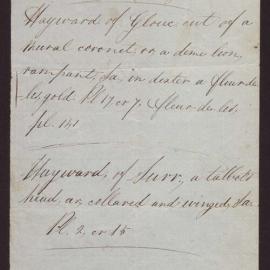 Hayward of Glouc. out of a
mural coronet, or a demi lion,
rampant, sa. in dexter a fleur-de-
lis, gold Pl 17 cr 7. fleur-de-lis.
pl. 141
Hayward, of Surr., a talbot's
head, ar, collared and winged, sa.
Pl. 2 cr 15